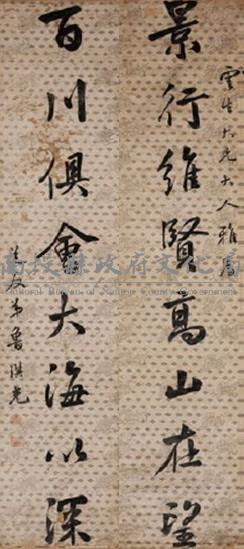 雲生大兄大人雅屬
景行維賢高山在望
百川俱會大海以深
弟魯琪光
南投縣政府文化局
Cultural Bureau of Nantou County Government